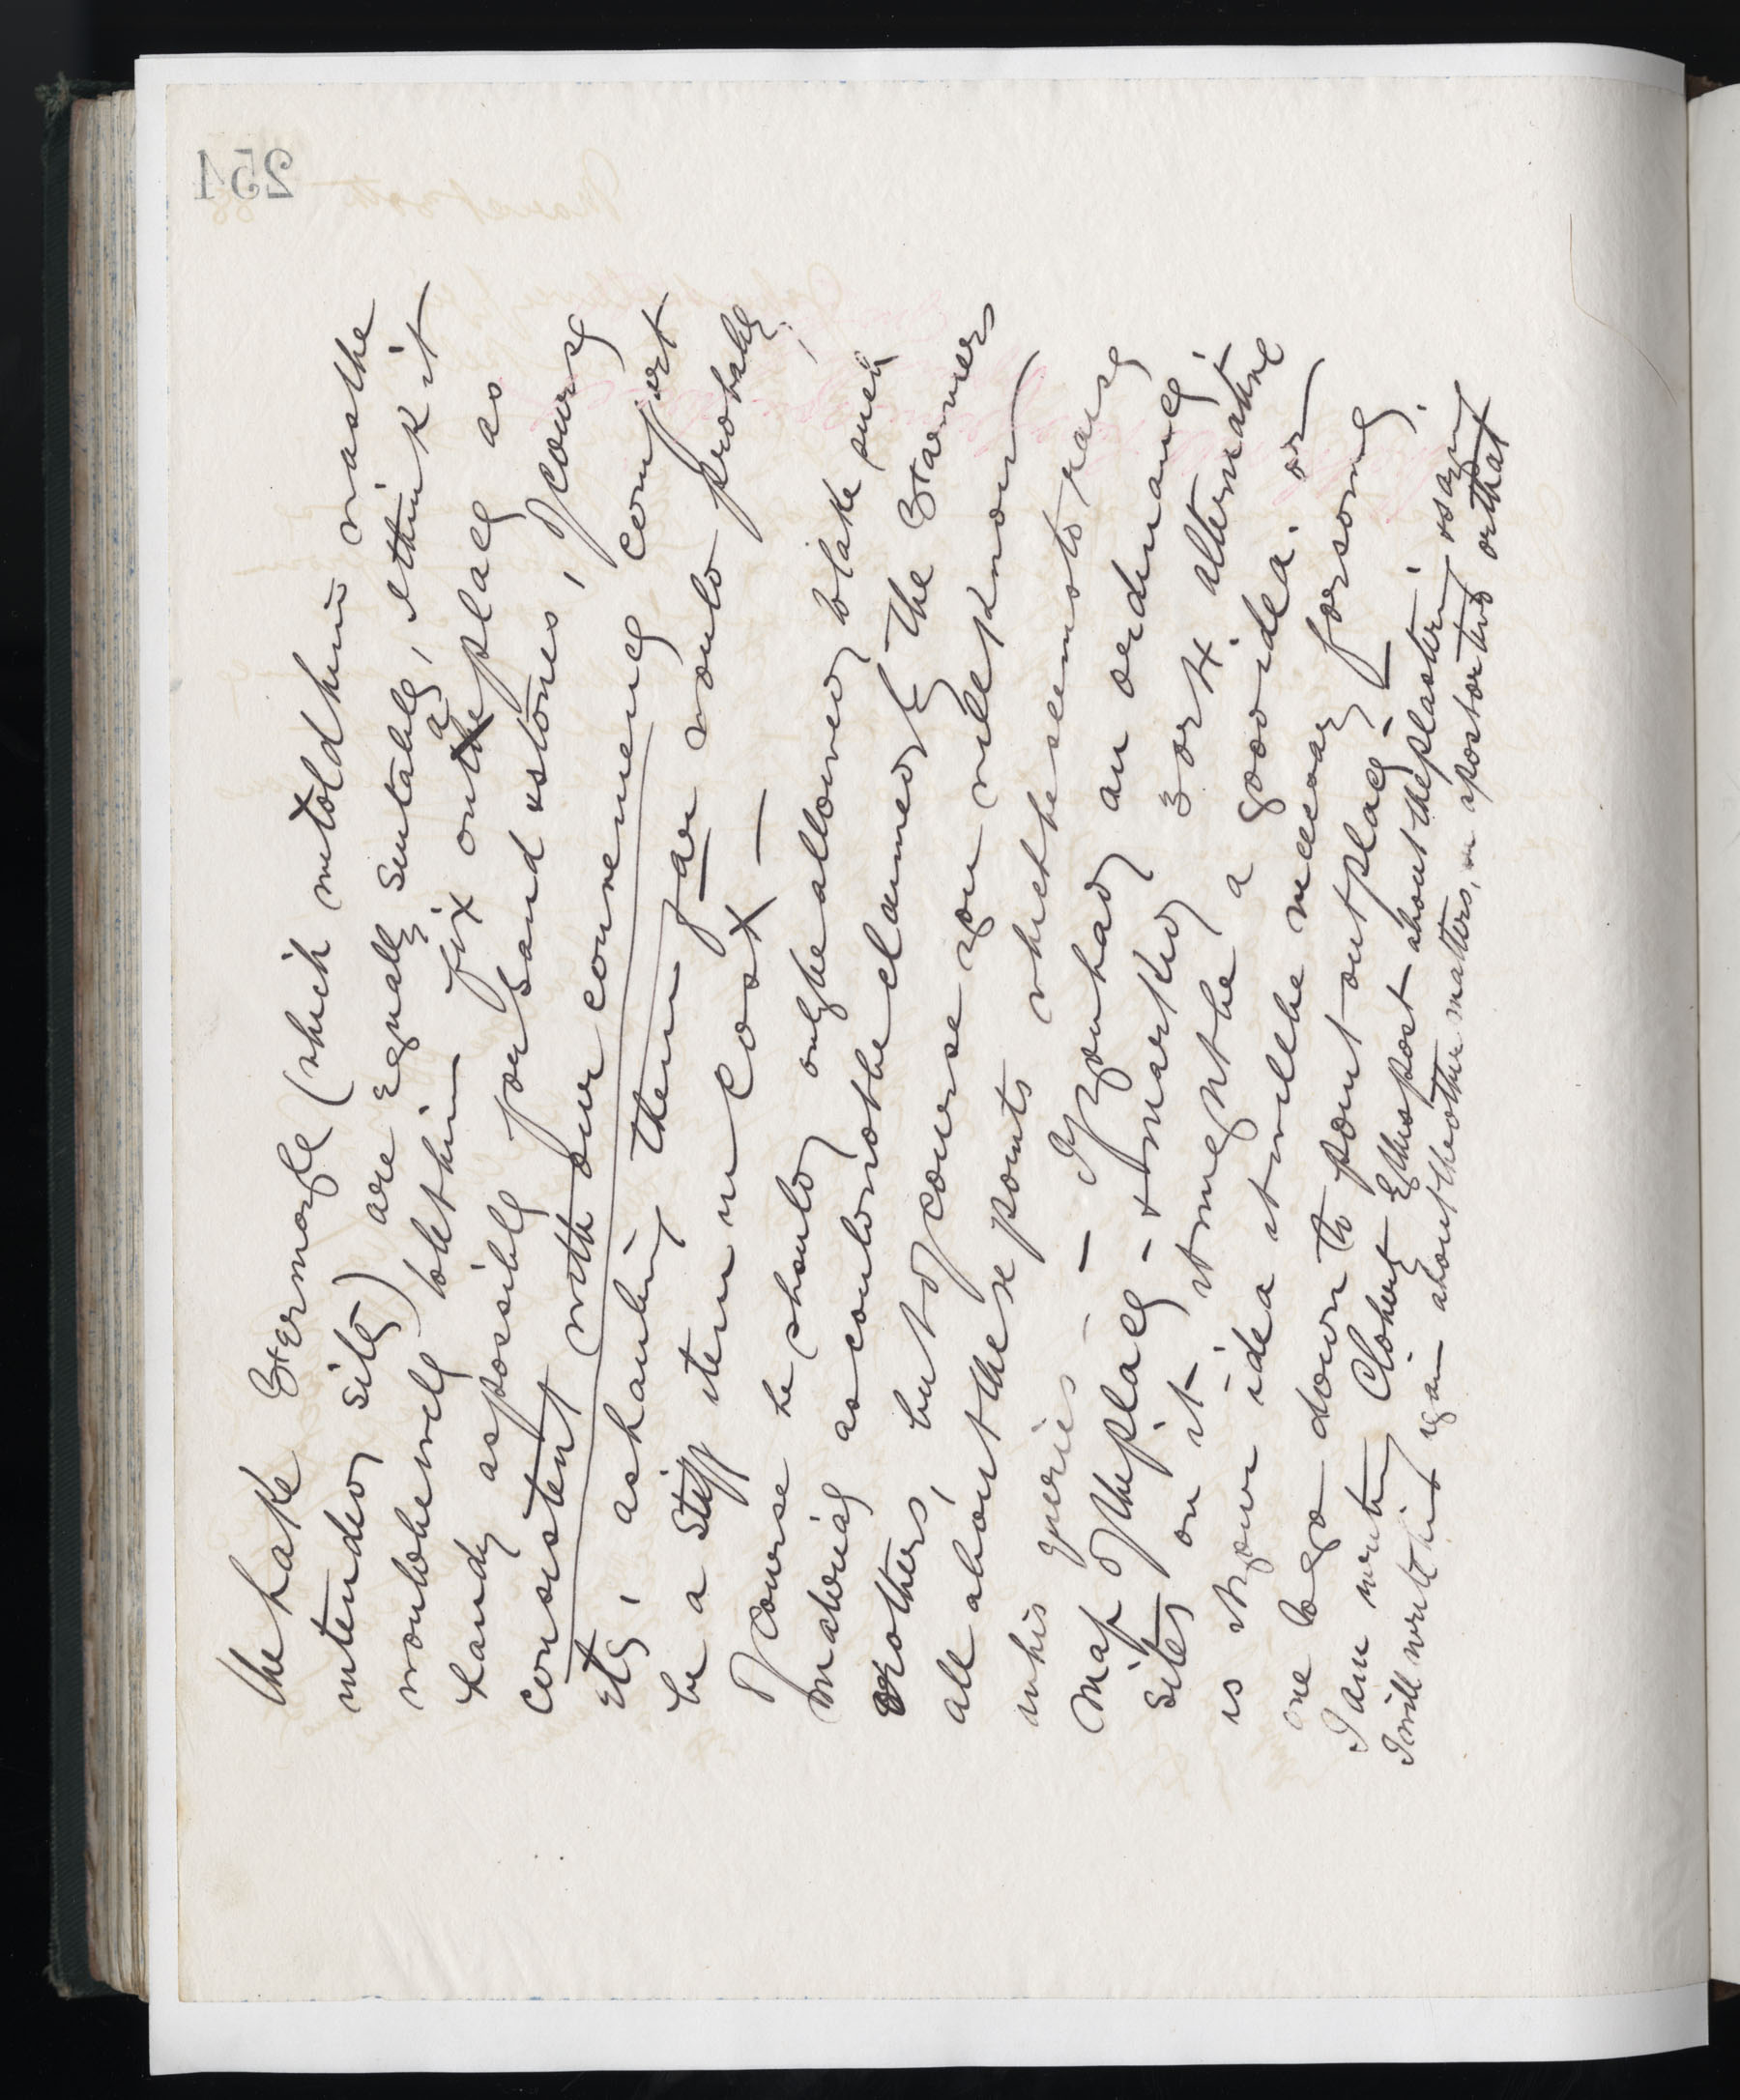 the Lake & Ermoyle (which we told him was the
intended site) are equally suitable, I think it
would be well to let him fix on the a place as
handy as possible for sand & stones, of course
consistent with our convenience comfort
etc, as hauling them far would probably
be a stiff item in cost —
Of course he should only be allowed to take such
material as could not be claimed by the Stanners
or others, but of course you will know
all about these points which he seems to raise
in his queries — If you had an ordnance
map of the place — & marked 3 or 4 alternative
sites on it it might be a good idea. or
is it your idea it will be necessary for some
one to go down to point out place —
I am writing Clohert by this post about the plastering & saying
I will write him again about the other matters, in a post or two or that
254